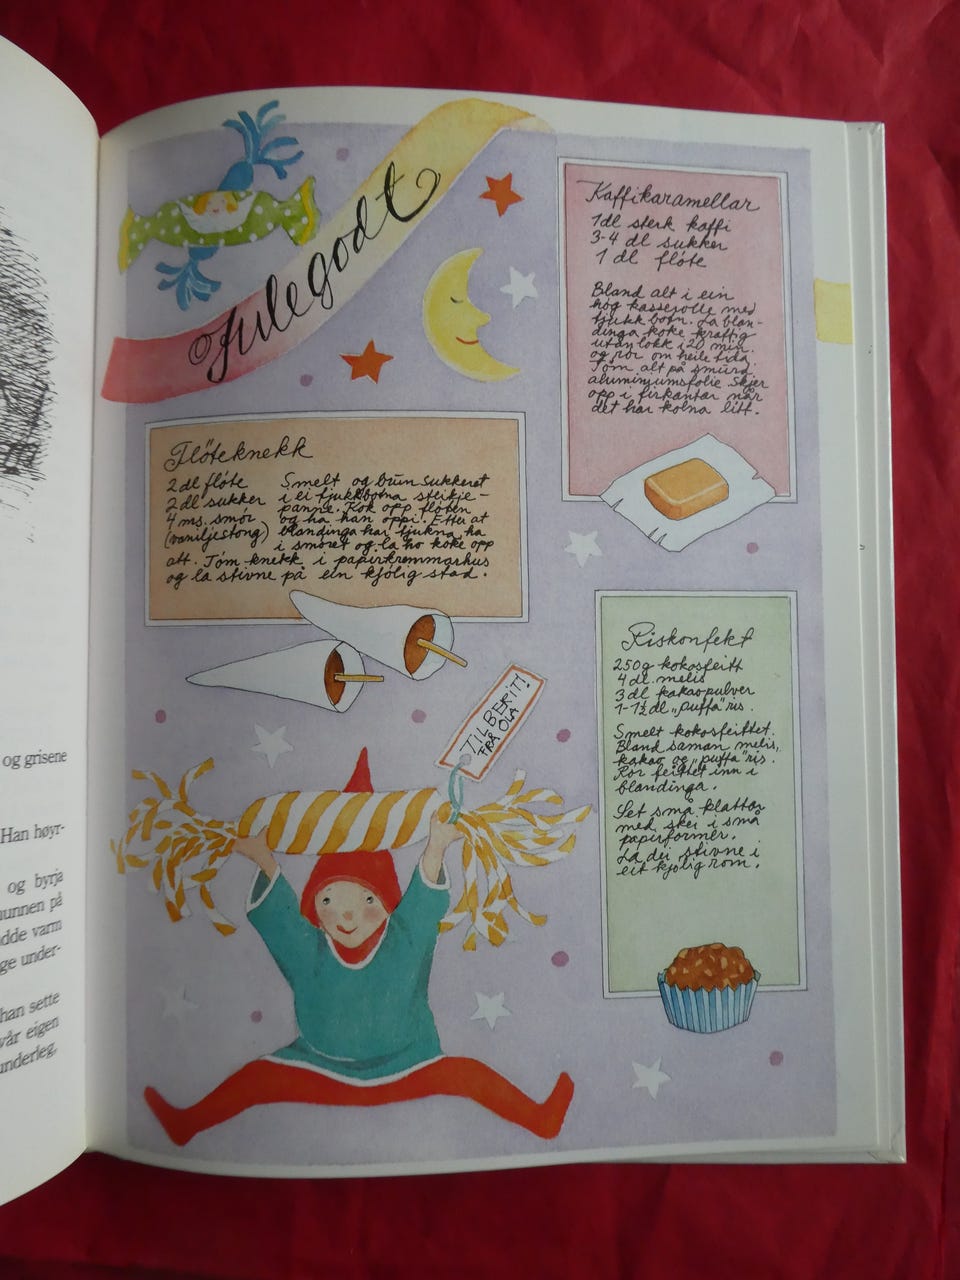 og grisene
Han høyr-
og byrja
unnen på
dde varm
ge under-
han sette
vår eigen
underleg,
Julegodt
Kaffikaramellar
1 dl sterk kaffi
3-4 dl sukker
1 dl fløte
Bland alt i ein
høg kasserolle med
tjukk botn. La blan-
dinga koke kraftig
utan lokk i 20 min.
og rør om heile tida.
Tøm alt på smurd
aluminiumsfolie. Skjer
opp i firkantar når
det har kolna litt.
Fløteknekk
2 dl fløte
2 dl sukker
4 ms. smør
(vaniljestong)
Smelt og brun sukkeret
i ei tjukkbotna steikje-
panne. Kok opp fløten
og ha han oppi. Etter at
blandinga har tjukna, ha
i smøret og la ho koke opp
att. Tøm knekk i papirkremmarhus
og la stivne på ein kjølig stad.
TIL BERIT!
FRÅ OLA
Riskonfekt
250g kokosfeitt
4 dl melis
3 dl kakaopulver
1-1½ dl "puffa" ris.
Smelt kokosfeittet.
Bland saman melis,
kakao og "puffa" ris.
Rør feittet inn i
blandinga.
Set små klattar
med skei i små
papirformer.
La dei stivne i
eit kjølig rom.